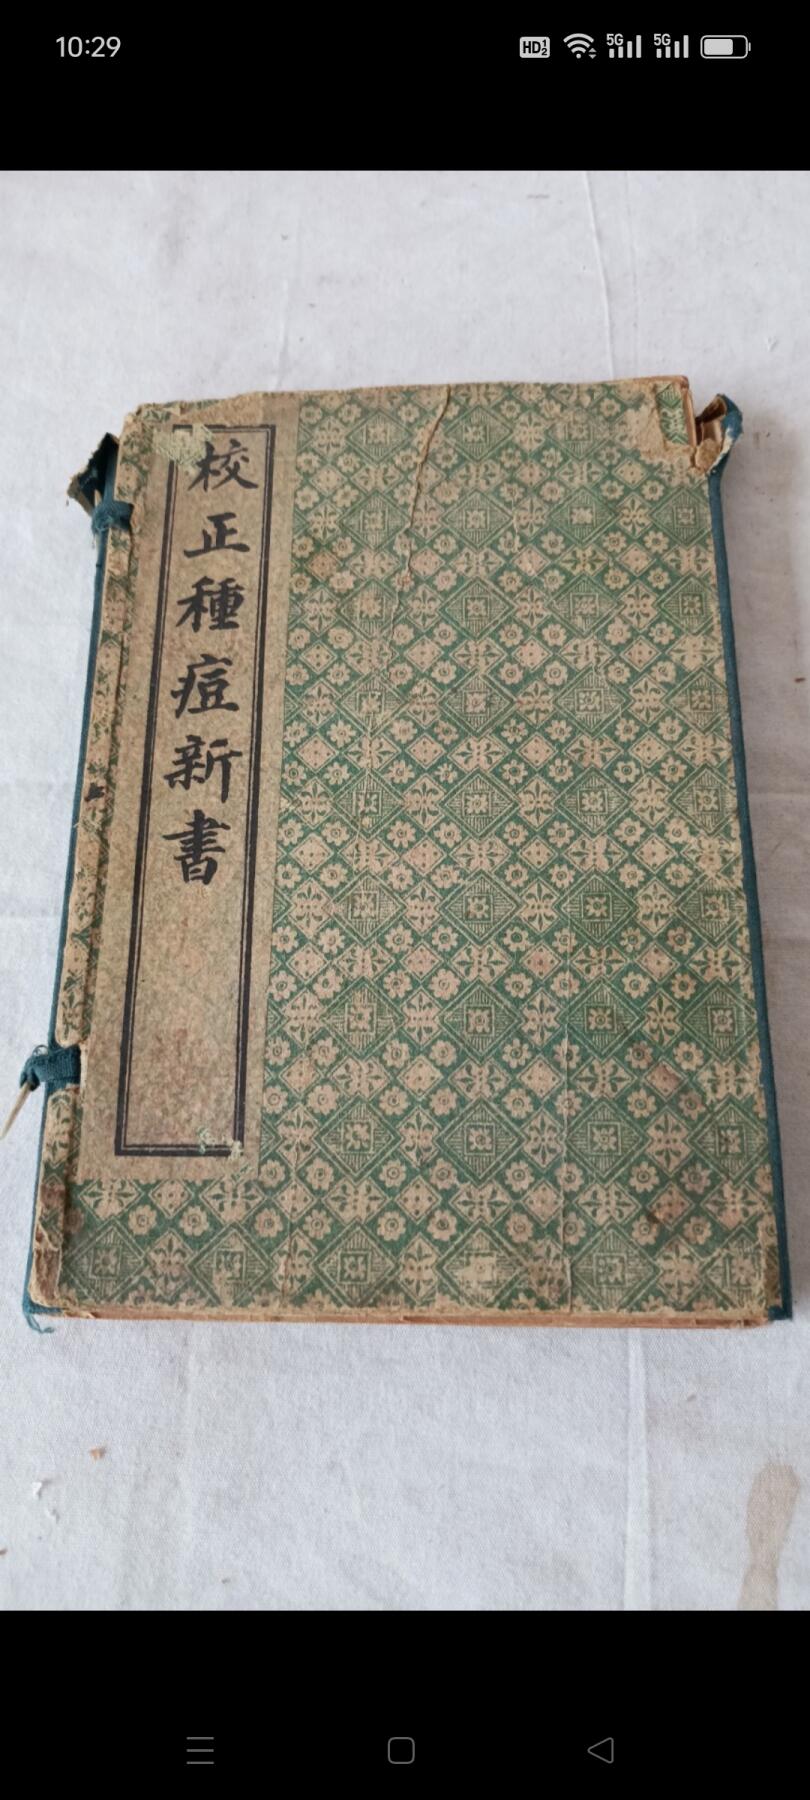 10:29
HD 1 2
5G
5G
校正種痘新書